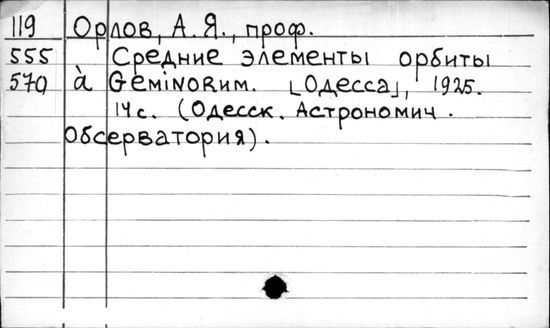 119 Орлов, А. Я., проф.
555 Средние элементы орбиты
570 à Geminorum. [Одесса], 1925.
14 с. (Одесск. Астрономич.
Обсерватория).